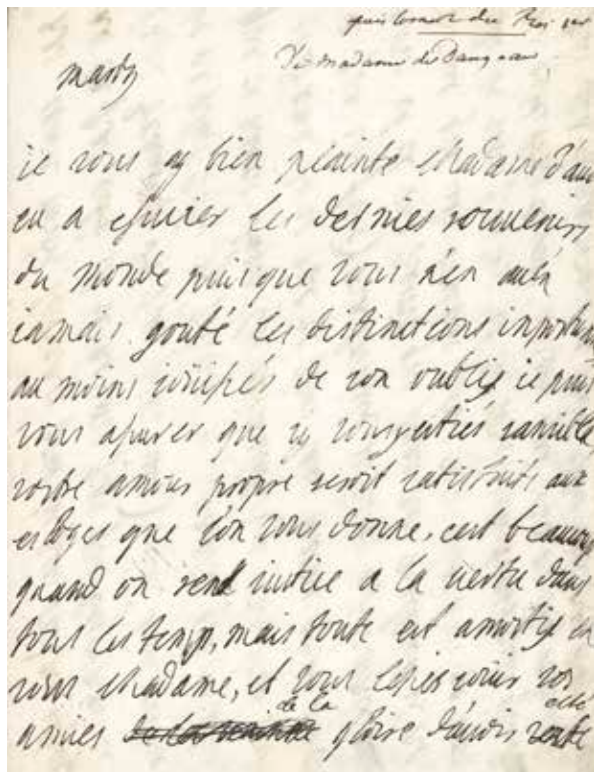 puis la mort du Roi
De Madame de Dangeau
mardy
ie vous ay bien plainte Madame d'auoir
eu a essuier les dernies souuenirs
du monde puisque vous n'en aués
iamais gouté les distinctions
au moins ioüissés de son oubly ie puis
vous assurer que sy vous y estiés sansible
vostre amour propre seroit satisfaits aux
esloges que l'on vous donne, c'est beaucoup
quand on rend iustice a la uertu dans
tous les temps, mais toute est amorty en
vous Madame, et vous laissés vos
amies de la gloire d'auoir esté